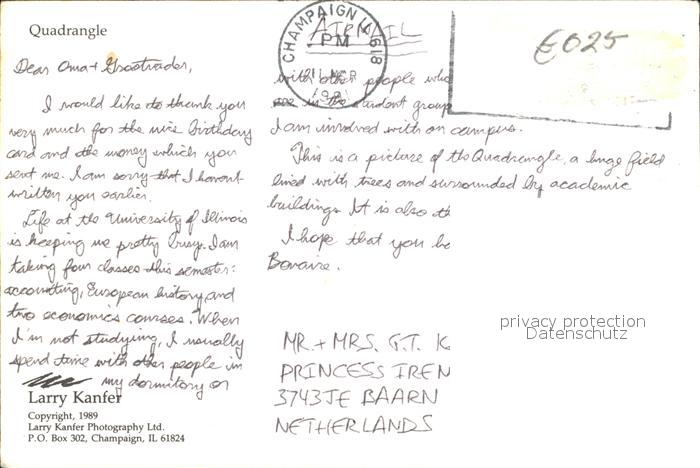 Quadrangle
Dear Oma + Grootvader,
I would like to thank you
very much for the nice birthday
card and the money which you
sent me. I am sorry that I haven't
written you earlier.
Life at the University of Illinois
is keeping me pretty busy. I am
taking four classes this semester:
accounting, European history, and
two economics courses. When
I'm not studying, I usually
spend time with other people in
my dormitory or
Larry Kanfer
Copyright, 1989
Larry Kanfer Photography Ltd.
P.O. Box 302, Champaign, IL 61824
CHAMPAIGN IL 618
PM
AIR
IL
€025
with other people who
are in the student group
I am involved with on campus.
This is a picture of the Quadrangle, a huge field
lined with trees and surrounded by academic
buildings. It is also th
I hope that you
Bonaire.
MR. + MRS. G.T. K
PRINCESS IREN
3743JE BAARN
NETHERLANDS
privacy protection
Datenschutz